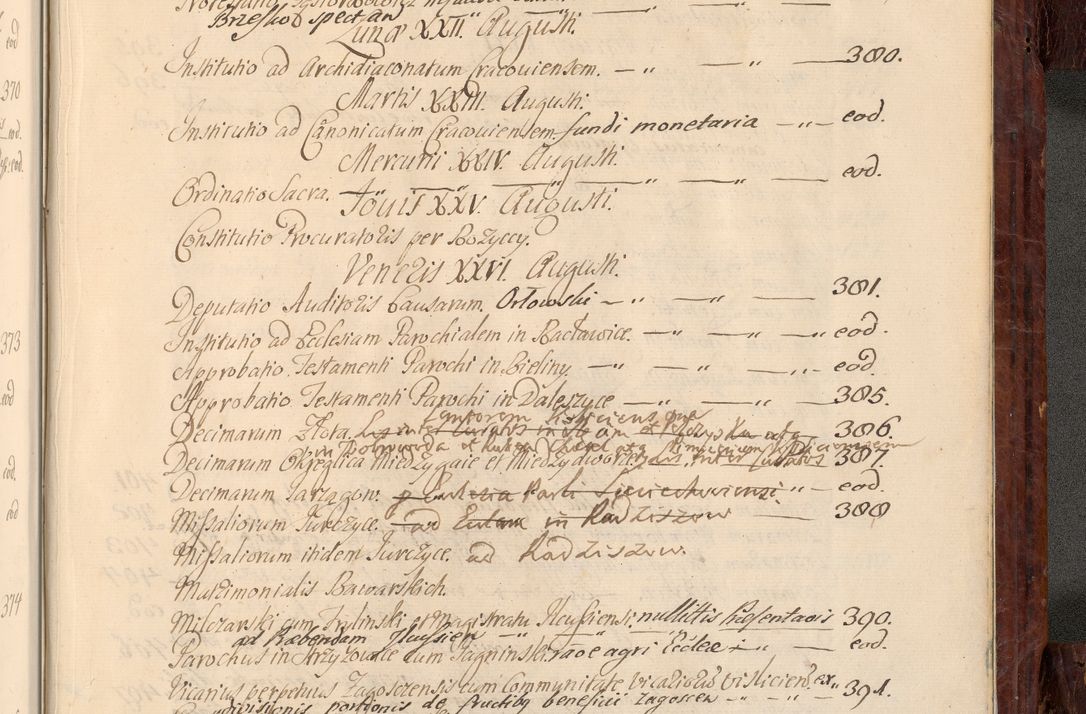 Brzesko spectan
Lunæ XXII. Augusti.
Institutio ad Archidiaconatum Cracoviensem. — „ — „ — 380.
Martis XXIII. Augusti.
Institutio ad Canonicatum Cracoviensem fundi monetaria — „ — eod.
370
Mercurii XXIV. Augusti.
Ordinatio Sacra. — „ — „ — „ — „ — eod.
Jovis XXV. Augusti.
Constitutio Procuratoris per Bożyccy.
Veneris XXVI. Augusti.
Deputatio Auditoris Causarum, Orłowski — „ — „ — 381.
373
Institutio ad Ecclesiam Parochialem in Racławice. — „ — „ — „ eod.
Approbatio Testamenti Parochi in Bieliny. — „ — „ — „ — eod.
Approbatio Testamenti Parochi in Daleszyce — „ — „ — 385.
Decimarum Złota. 386.
Decimarum Okręglica Międzygaie et Międzydworze inter 387.
Decimarum Jarzągow. „ — eod.
Missaliorum Jurczyce. — ad in Radziszow — 388
Missaliorum ibidem Jurczyce. ad Radziszow.
Matrimonialis Bawarskich.
374
Milczarski cum Trylinski et Magistratu Ilcusiensi nullitis Presentaois 390.
ad Præbendam Ilcusien — „ — „ — „
Parochus in Strzyżowice cum Jagninski raoe agri Eccles — „ — eod.
Vicarius perpetuus Zagoscensis cum Communitate vicaliorũ Vislicien. ex „ 391.
divisionis portionis de fructiby beneficii Zagoscien — „ —